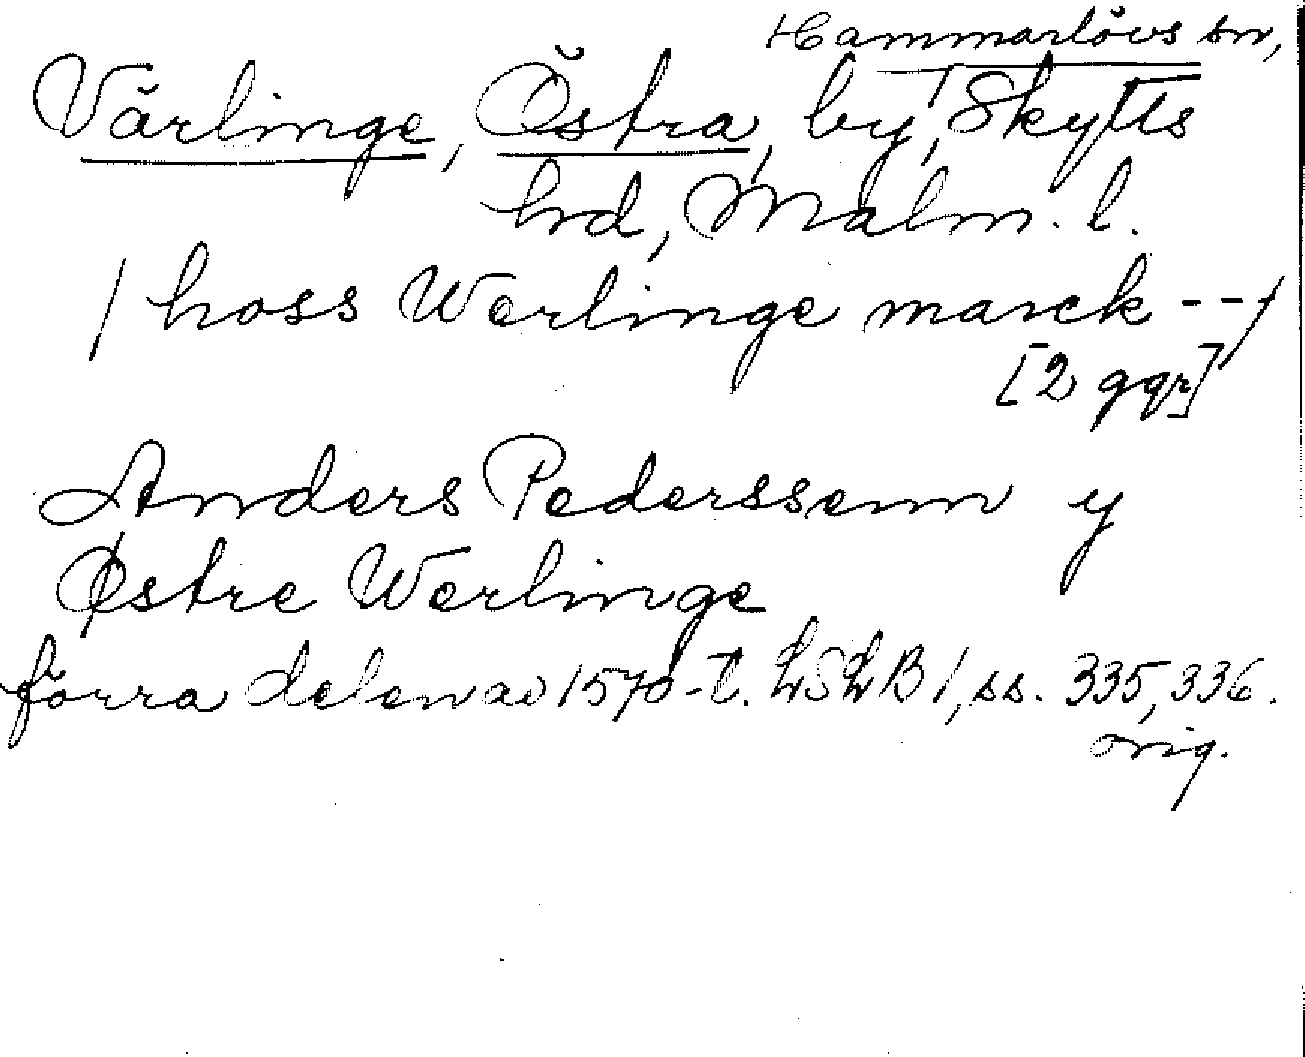 Hammarlövs sn,
Värlinge, Östra, by, Skytts
hrd, Malm. l.
/ hoss Werlinge marck --/
[2 ggr]
Anders Pederssenn y
Østre Werlinge
förra delen av 1570-t. LSLB 1, ss. 335, 336.
orig.